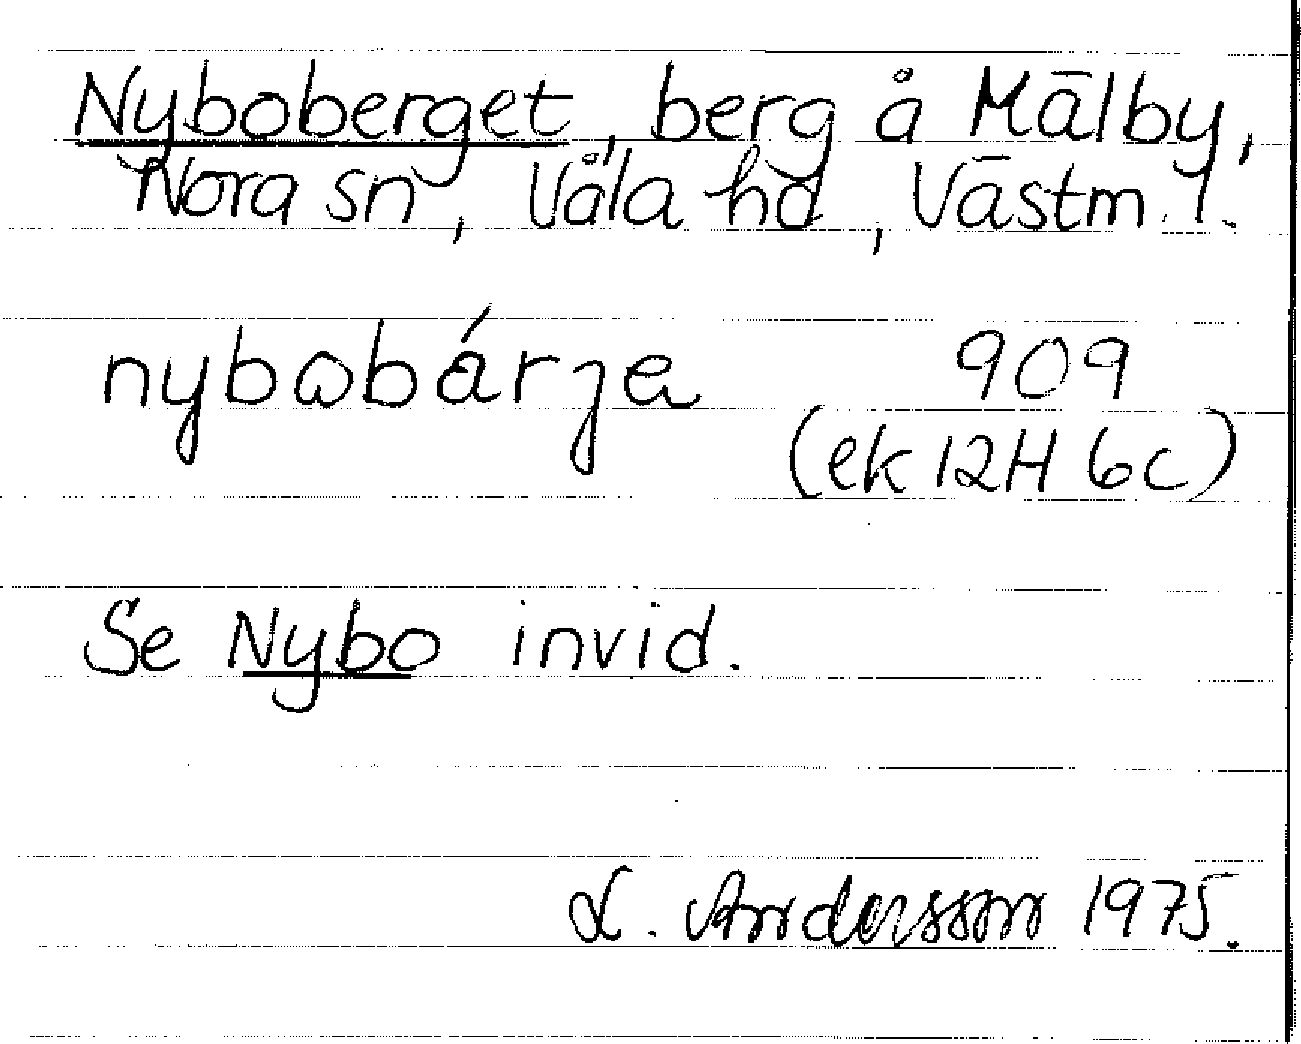 Nyboberget, berg å Mälby,
Nora sn, Våla hd, Västm. l.
nybωbárȷa 909
(ek 12H 6c)
Se Nybo invid.
L. Andersson 1975.